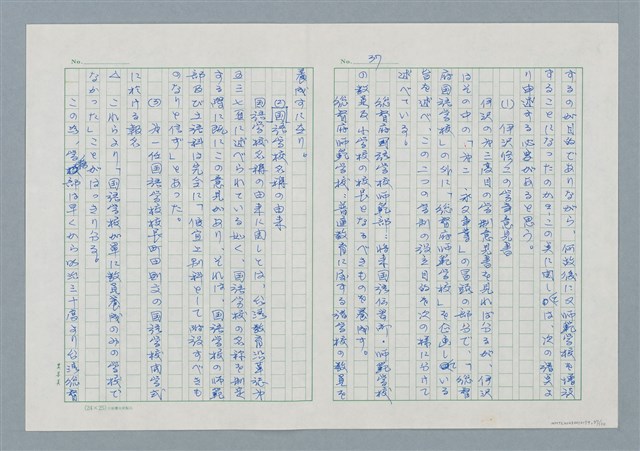 No. 37
するのが目的でありながら、何故後に又師範学校を増設
することになったのか？この点に関しては、次の諸点よ
り申述する必要があると思う。
(1) 伊沢修二の学事意見書
伊沢の第三度目の学制意見書を見れば分るが、伊沢
はその中の「第二、永久事業」の冒頭の部分で、「総督
府国語学校」の外に、「総督府師範学校」を企画している
旨を述べ、この二つの学制の設立目的を次の様に分けて
述べている。
総督府国語学校師範部：将来国語伝習所・師範学校
の教員及小学校の校長となるべきものを養成す。
総督府師範学校：普通教育に属する諸学校の教員を
No.
養成すにあり。
(2) 国語学校名称の由来
国語学校名称の由来に関しては、台湾教育沿革誌
五三七頁に述べられている如く、国語学校の名称を制定
する際に既にこの意見があり、それは、国語学校の師範
部及び土語科は完全に「便宜上別科として附設すべきも
のなりと信ず」とあった。
(3) 第一任国語学校校長町田則文の国語学校式
に於ける報告
これらより、「国語学校が単に教員養成のみの学校で
なかった」ことがはっきり分る。
この為、学務部は早くから明治三十 年より台湾総督
(24×25)